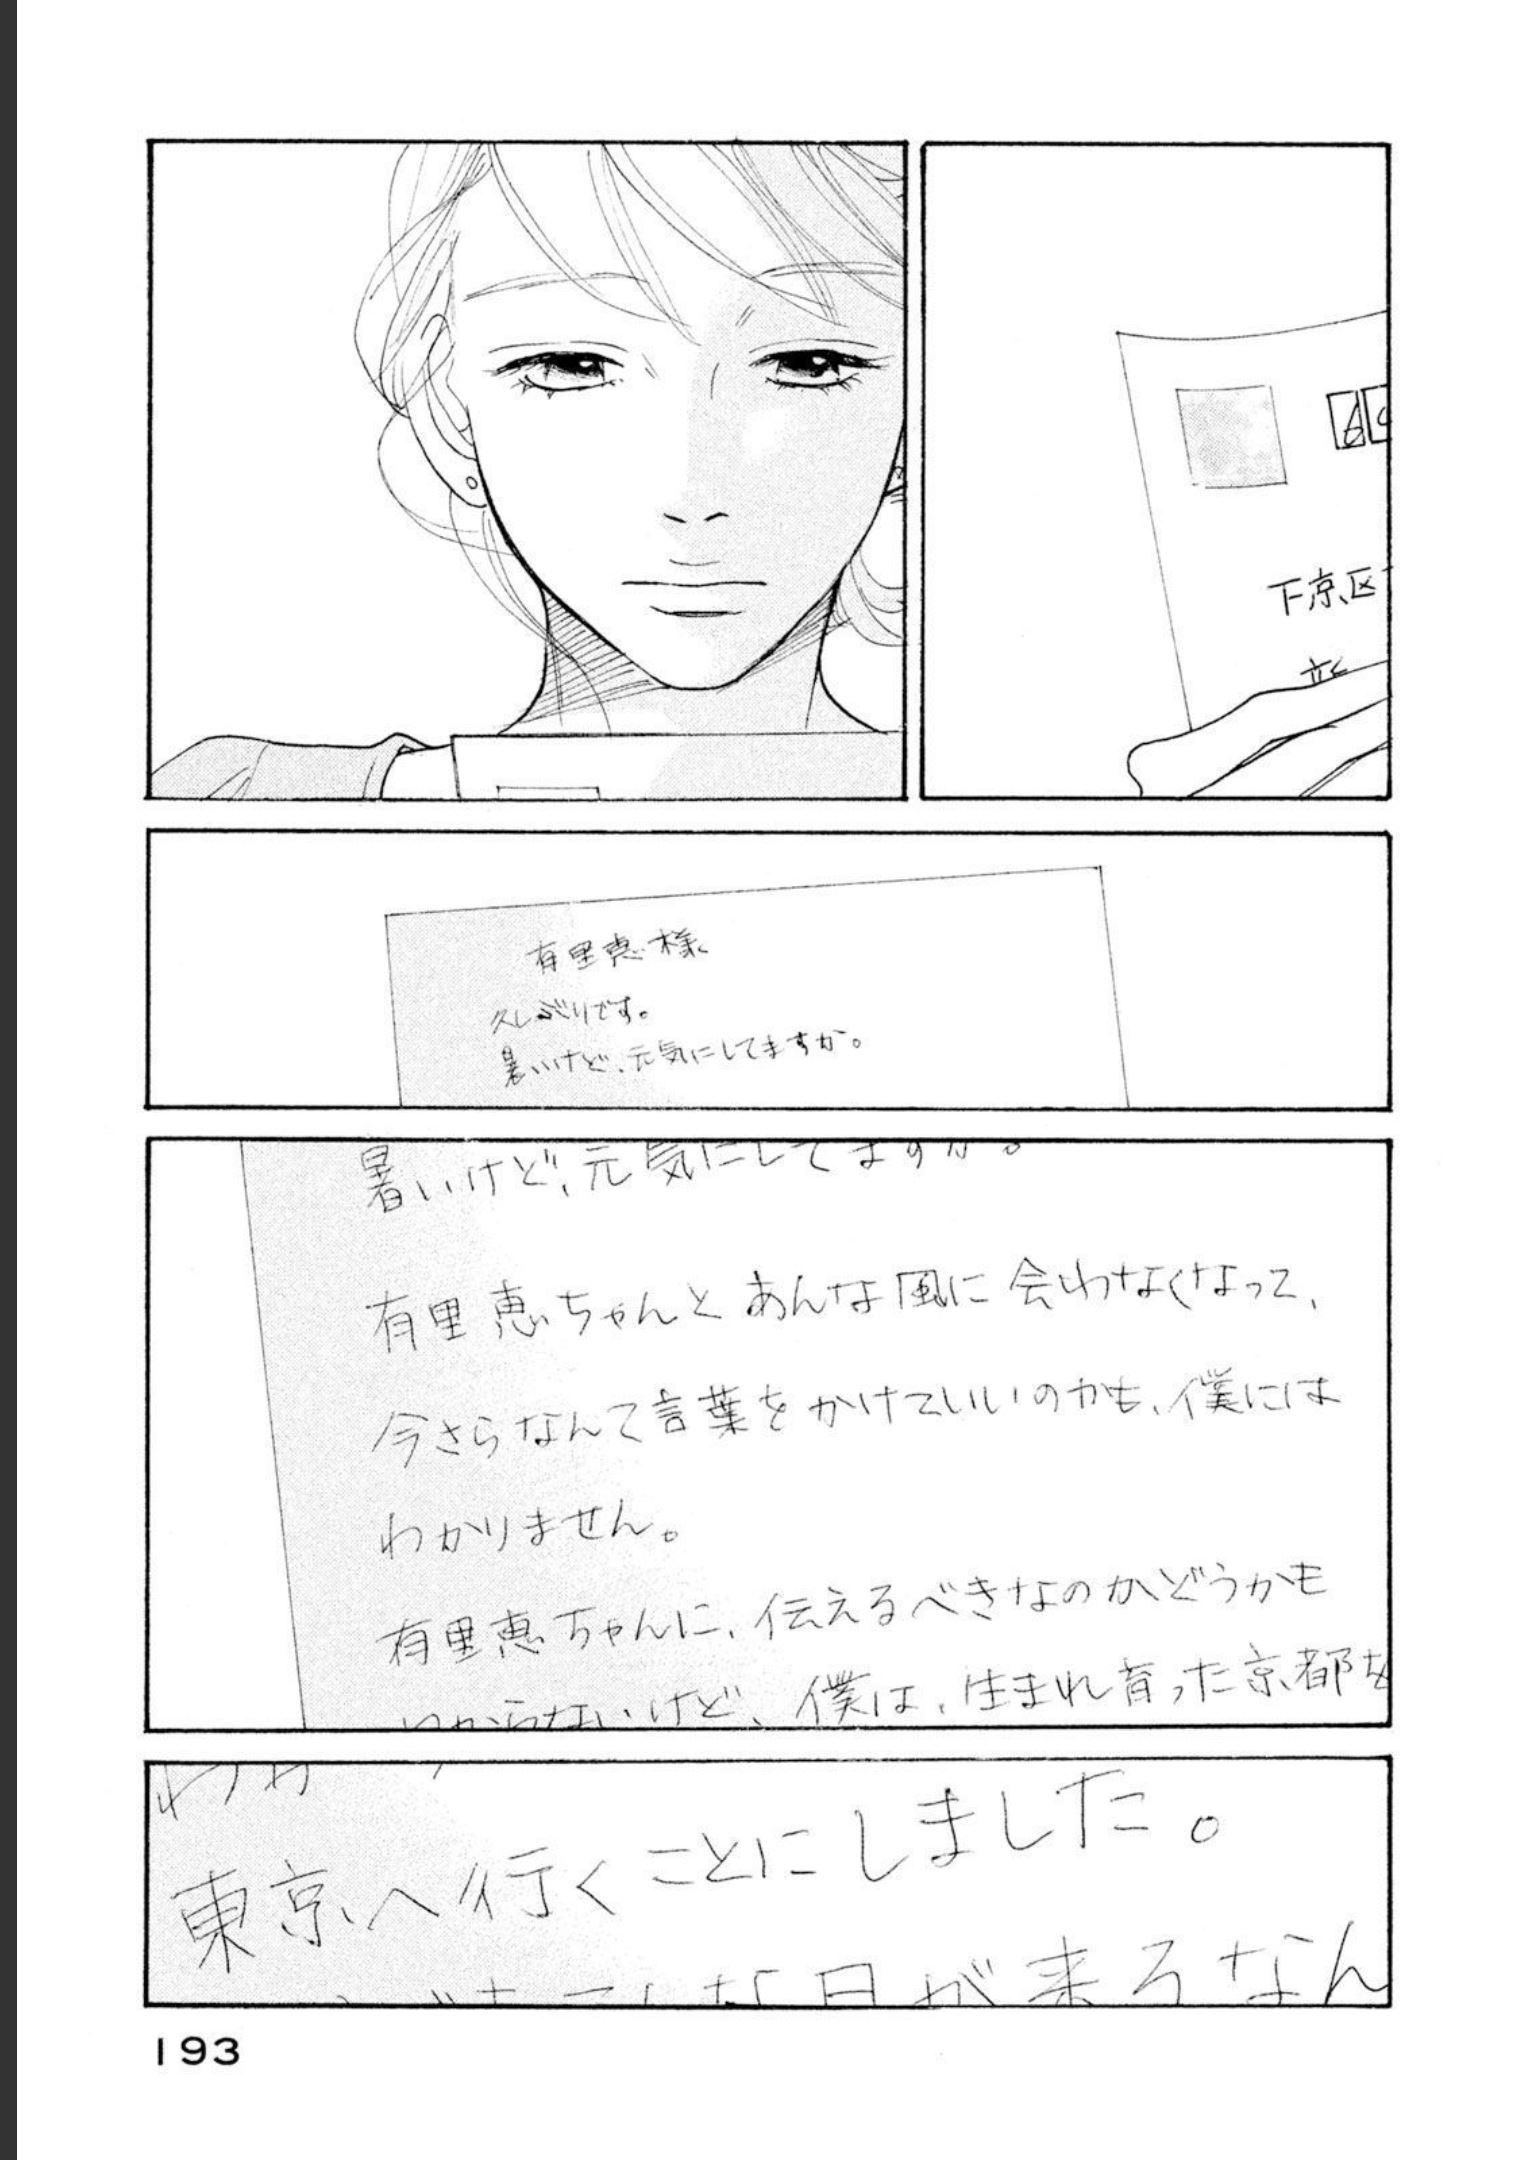 下京区
有里恵様
久しぶりです。
暑いけど、元気にしてますか。
暑いけど、元気にしてますか。
有里恵ちゃんとあんな風に会わなくなって、
今さらなんて言葉をかけていいのかも、僕には
わかりません。
有里恵ちゃんに、伝えるべきなのかどうかも
わからないけど、僕は、生まれ育った京都を
東京へ行くことにしました。
な日が来るなん
193